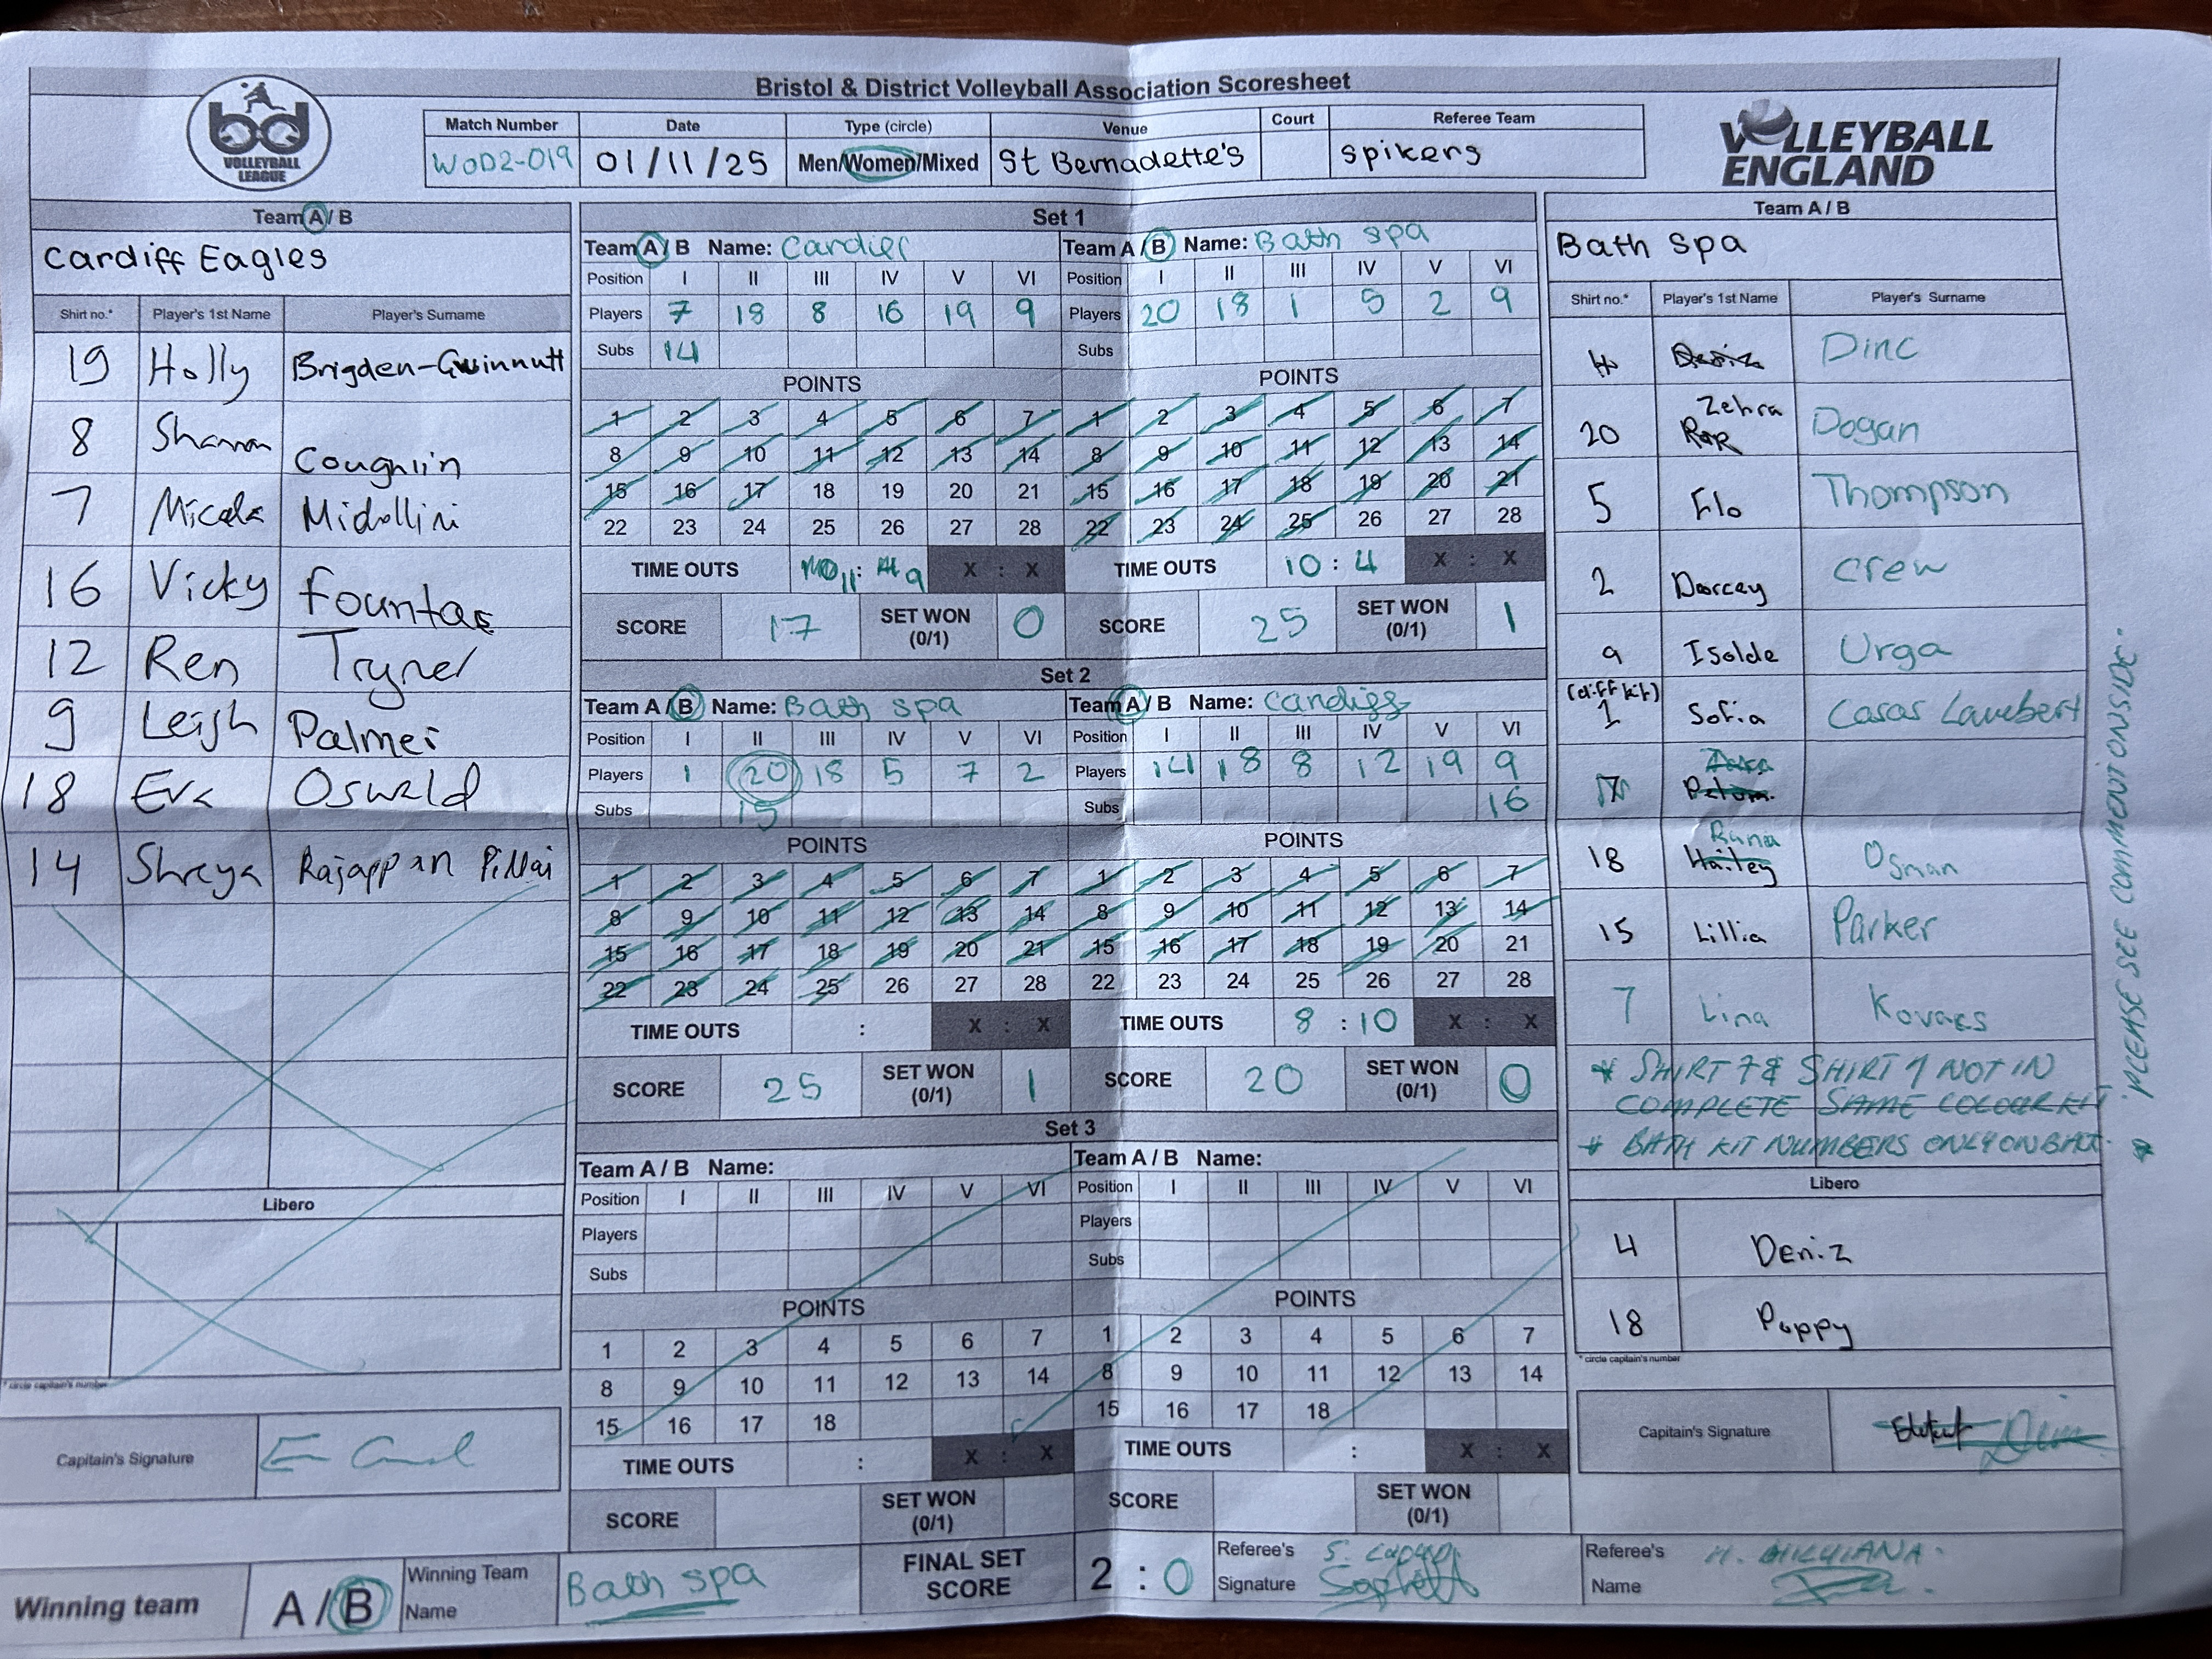 Bristol & District Volleyball Association Scoresheet
bd
VOLLEYBALL
LEAGUE
VOLLEYBALL
ENGLAND
Match Number Date Type (circle) Venue Court Referee Team
WOD2-019 01/11/25 Men/Women/Mixed St Bernadette's Spikers
Team A / B
Cardiff Eagles
Shirt no.* Player's 1st Name Player's Surname
19 Holly Brigden-Gwinnutt
8 Coughlin
7 Midollini
16 Vicky Fountas
12 Ren Tryner
9 Leigh Palmer
18 Eva Oswald
14 Shreya Rajappan Pillai
Libero
* circle captain's number
Capitain's Signature
Set 1
Team A / B Name: Cardiff
Position I II III IV V VI
Players 7 18 8 16 19 9
Subs 14
POINTS
1 2 3 4 5 6 7
8 9 10 11 12 13 14
15 16 17 18 19 20 21
22 23 24 25 26 27 28
TIME OUTS 11 : 9 X : X
SCORE 17 SET WON (0/1) 0
Team A / B Name: Bath Spa
Position I II III IV V VI
Players 20 18 1 5 2 9
Subs
POINTS
1 2 3 4 5 6 7
8 9 10 11 12 13 14
15 16 17 18 19 20 21
22 23 24 25 26 27 28
TIME OUTS 10 : 4 X : X
SCORE 25 SET WON (0/1) 1
Set 2
Team A / B Name: Bath spa
Position I II III IV V VI
Players 1 20 18 5 7 2
Subs 15
POINTS
1 2 3 4 5 6 7
8 9 10 11 12 13 14
15 16 17 18 19 20 21
22 23 24 25 26 27 28
TIME OUTS : X : X
SCORE 25 SET WON (0/1) 1
Team A / B Name: Cardiff
Position I II III IV V VI
Players 14 18 8 12 19 9
Subs 16
POINTS
1 2 3 4 5 6 7
8 9 10 11 12 13 14
15 16 17 18 19 20 21
22 23 24 25 26 27 28
TIME OUTS 8 : 10 X : X
SCORE 20 SET WON (0/1) 0
Set 3
Team A / B Name:
Position I II III IV V VI
Players
Subs
POINTS
1 2 3 4 5 6 7
8 9 10 11 12 13 14
15 16 17 18
TIME OUTS : X : X
SCORE SET WON (0/1)
Team A / B Name:
Position I II III IV V VI
Players
Subs
POINTS
1 2 3 4 5 6 7
8 9 10 11 12 13 14
15 16 17 18
TIME OUTS : X : X
SCORE SET WON (0/1)
Team A / B
Bath Spa
Shirt no.* Player's 1st Name Player's Surname
4 Deniz Dinc
20 Zehra Dogan
5 Flo Thompson
2 Darcey Crew
9 Isolde Urga
(diff kit)
1 Sofia Casas Lambert
18 Hailey Rana Osman
15 Lillia Parker
7 Lina Kovacs
* SHIRT 7 & SHIRT 1 NOT IN
COMPLETE SAME COLOUR KIT
* BATH KIT NUMBERS ONLY ON BACK.
* PLEASE SEE COMMENT ONSIDE.
Libero
4 Deniz
18 Poppy
* circle captain's number
Capitain's Signature
Winning team A / B
Winning Team Name Bath spa
FINAL SET SCORE 2 : 0
Referee's Signature
Referee's Name